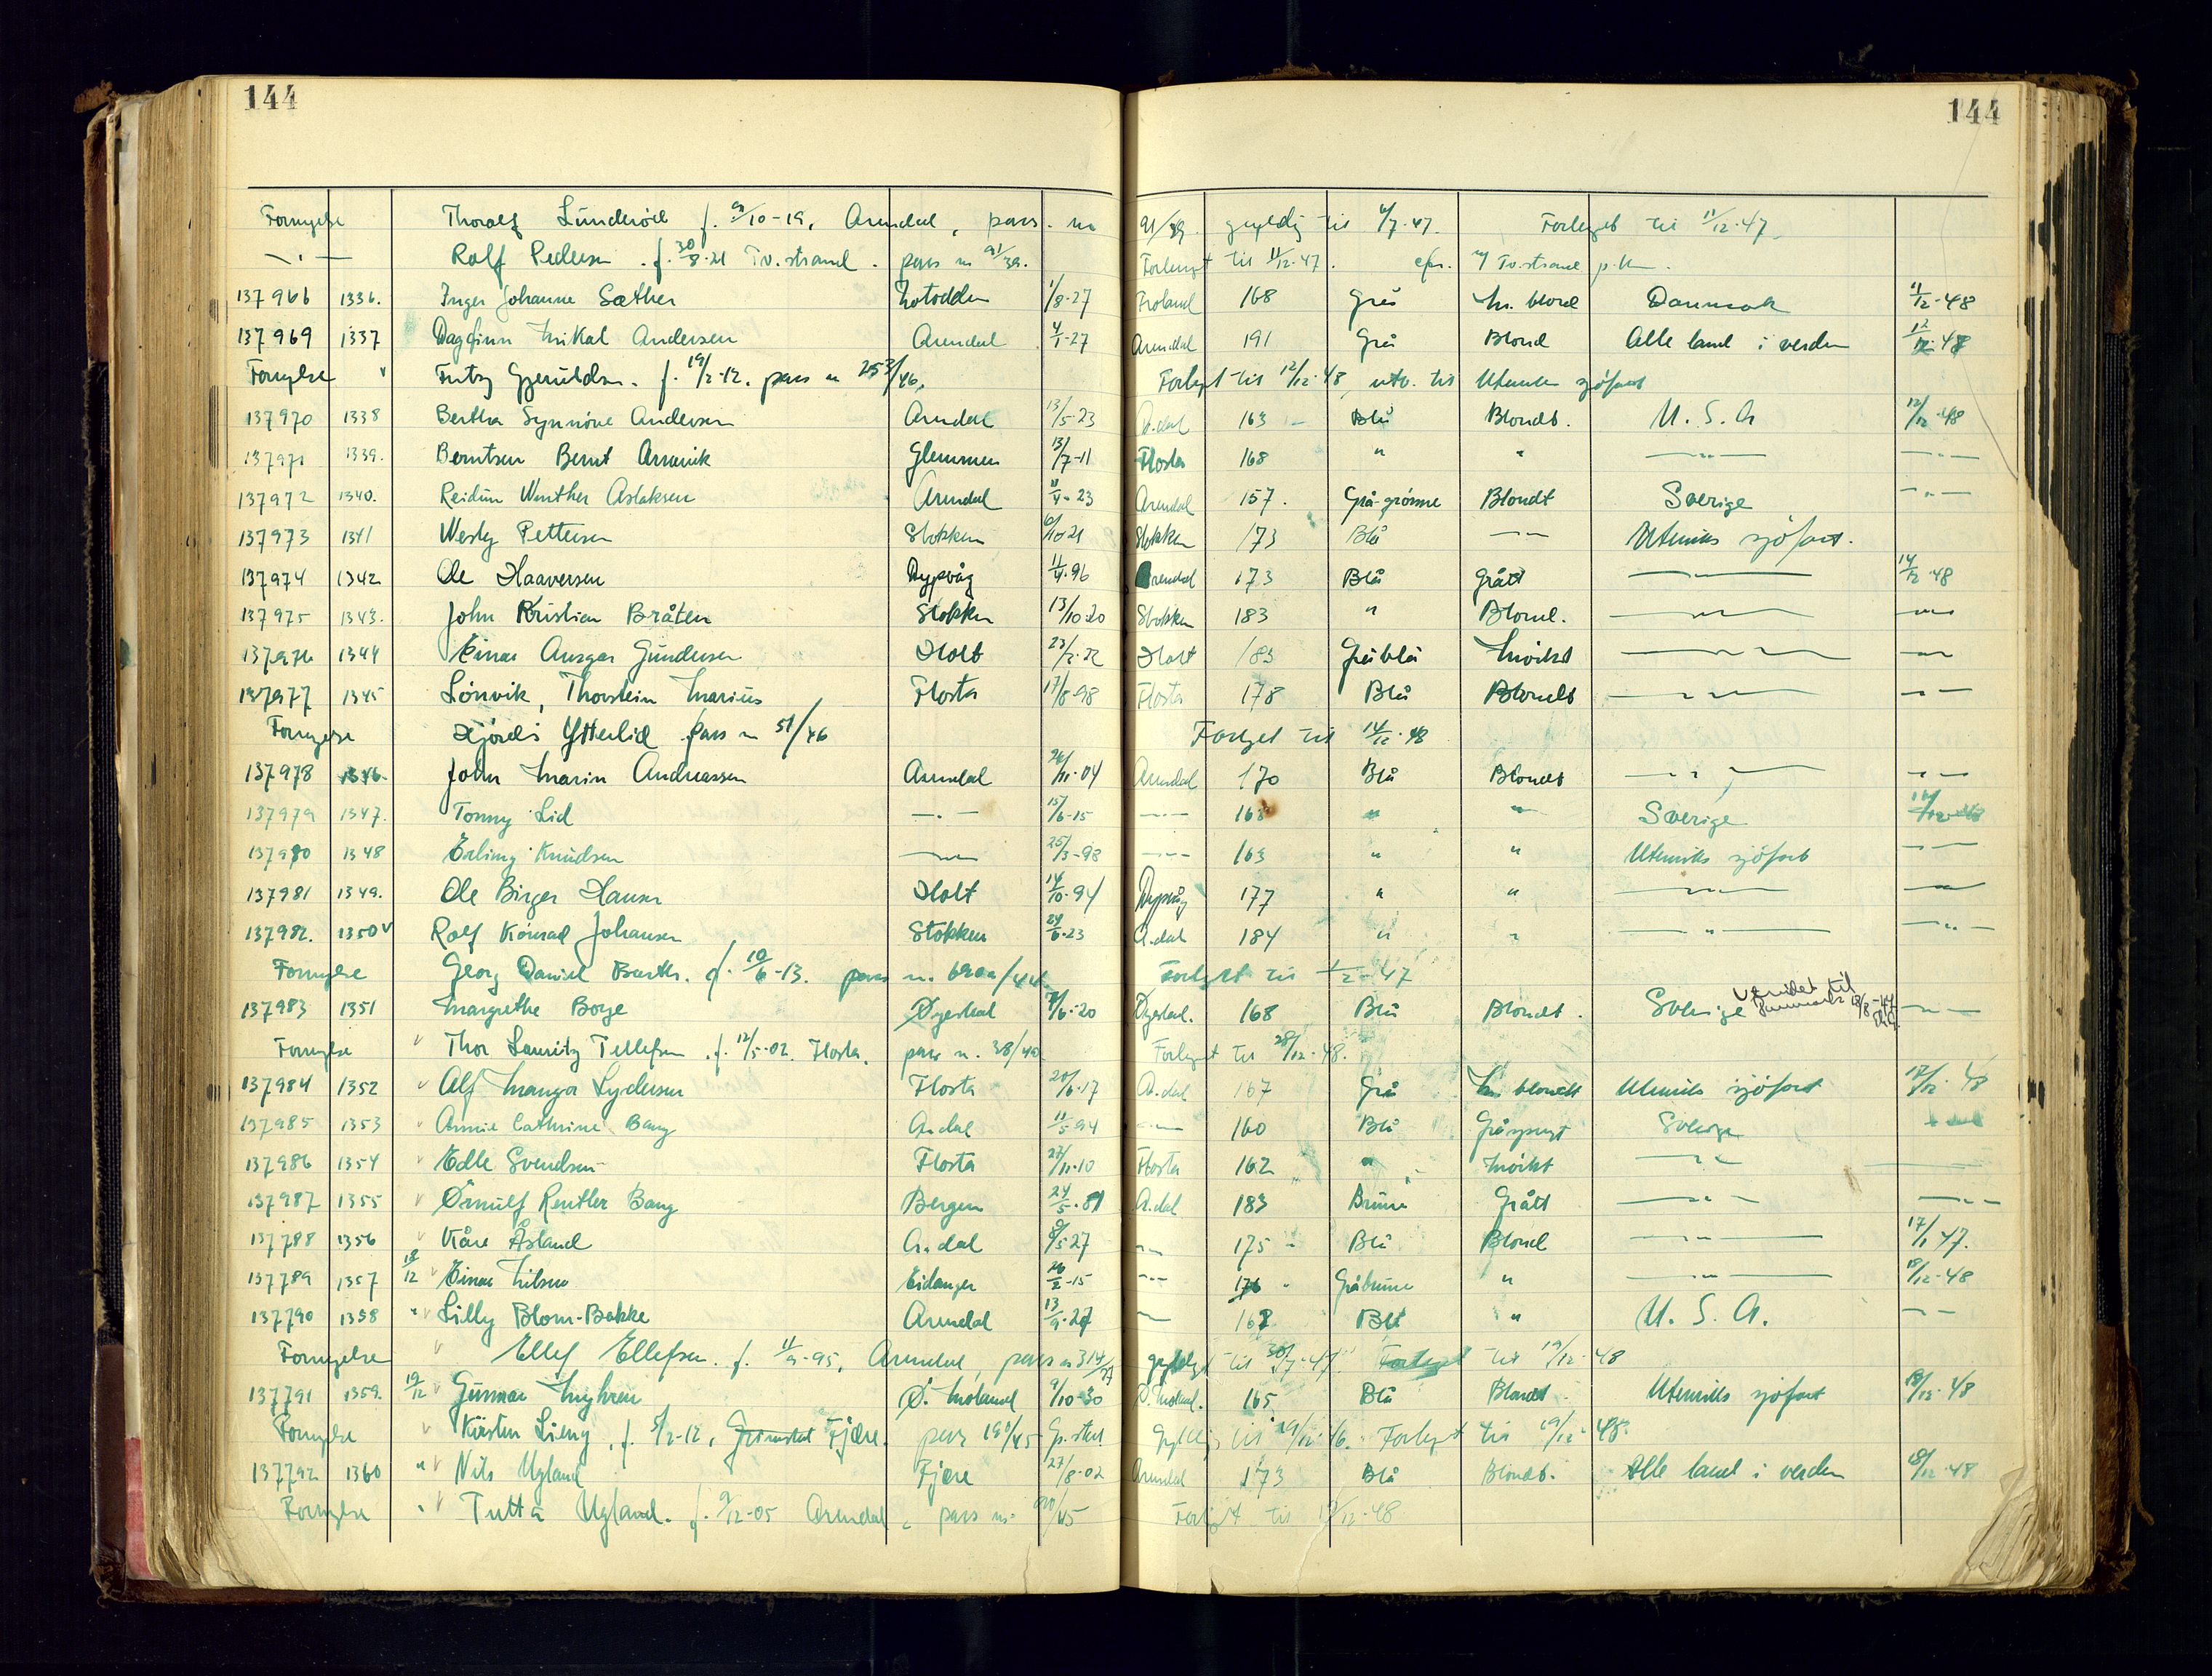 144 144
Fornyelse Thoralf f. /10-19, Arendal, pass nr 91/39 gyldig til 4/7-47. Forlenget til 11/12-47
—"— Rolf Pedersen f. 30/8-21 Tv.strand. pass nr 91/39. Forlenget til 11/12-47. Tv.strand p.k.
137966 1336. Inger Johanne Sæther Notodden 1/8-27 Froland 168 Grå M. blond Danmark 11/12-48
137969 1337 Dagfinn Mikal Andersen Arendal 4/1-27 Arendal 191 Grå Blond Alle land i verden 12/12-48
Fornyelse v Fritz Gjeruldsen. f. 19/2-12. pass nr 253/46. Forlenget til 12/12-48, utv. til Utenriks sjöfart
137970 1338 Bertha Synnöve Andersen Arendal 13/5-23 A.dal 163 Blå Blondt. U.S.A 12/12-48
137971 1339. Berntsen Bernt Glemmen 13/7-11 Flosta 168 " " —"— —"—
137972 1340. Reidun Winther Aslaksen Arendal 11/4-23 Arendal 157. Grå-grönne Blondt Sverige —"—
137973 1341 Westy Pettersen Stokken 6/10-21 Stokken 173 Blå —"— Utenriks sjöfart.
137974 1342 Ole Haaversen Dypvåg 11/4-96 Arendal 173 Blå Grått —"— 14/12-48
137975 1343. John Kristian Bråten Stokken 13/10-20 Stokken 183 " Blond. —"— —"—
137976 1344 Einar Ansgar Gundersen Holt 23/2-22 Holt 183 Gråblå Mörkt —"— —"—
137977 1345 Lönvik, Thorstein Marius Flosta 17/8-98 Flosta 178 Blå Blondt —"— —"—
Fornyelse Hjördis Ytterlid pass nr 51/46 Forlenget til 14/12-48
137978 1346. John Marin Andreassen Arendal 26/11-04 Arendal 170 Blå Blondt —"— —"—
137979 1347. Tonny Lid —"— 15/6-15 —"— 168 " " Sverige
137980 1348 Erling Knudsen —"— 25/3-98 —"— 163 " " Utenriks sjöfart —"—
137981 1349. Ole Birger Hansen Holt 14/10-94 Dypvåg 177 " " —"— —"—
137982. 1350 v Rolf Konrad Johansen Stokken 24/6-23 A.dal 184 " " —"— —"—
Fornyelse Georg Daniel Barth. f. 10/6-13. pass nr. Forlenget til 1/2-47
137983 1351 Margrethe Borge Öyestad /6-20 Öyestad. 168 Blå Blondt. Sverige utvidet til Danmark 18/8-47 —"—
Fornyelse v Thor Lauritz Tellefsen f. 12/5-02. Flosta. pass nr. 38/40 Forlenget til 28/12-48.
137984 1352 v Alf Mangor Lydersen Flosta 20/6-17 A.dal 167 Grå M. blondt Utenriks sjöfart 17/12-48
137985 1353 v Annie Cathrine Bang A.dal 11/5-94 —"— 160 Blå Gråsprengt Sverige
137986 1354 v Edle Svendsen Flosta 27/11-10 Flosta 162 " Mörkt —"—
137987 1355 v Örnulf Rentler Bang Bergen 24/5-81 A.dal 183 Brune Grått —"— —"—
137788 1356 v Kåre Åsland A.dal 8/5-27 —"— 175 Blå Blond —"— 17/1-47.
137789 1357 18/12 v Einar Nilsen Eidanger 26/2-15 —"— 176 Gråbrune " —"— 18/12-48
137790 1358 " v Lilly Blom-Bakke Arendal 13/9-27 —"— 167 Blå " U.S.A. —"—
Fornyelse v Ellef Ellefsen. f. 11/9-95, Arendal, pass nr 314/37 gyldig til 30/7-47. Forlenget til 19/12-48
137791 1359. 19/12 v Gunnar Myhren Ö. Moland 9/10-30 Ö. Moland. 165 Blå Blondt. Utenriks sjöfart 18/12-48
Fornyelse v Kirsten Lieng, f. 5/2-12, Grimstad Fjære. pass 191/45 Gr.stad Gyldig til 19/12-46. Forlenget til 19/12-48.
137792 1360 " v Nils Ugland Fjære 27/8-02 Arendal 173 Blå Blondt. Alle land i verden 18/12-48
Fornyelse " v Tutta Ugland. f. 9/12-05 Arendal, pass nr. /45 Forlenget til 19/12-48